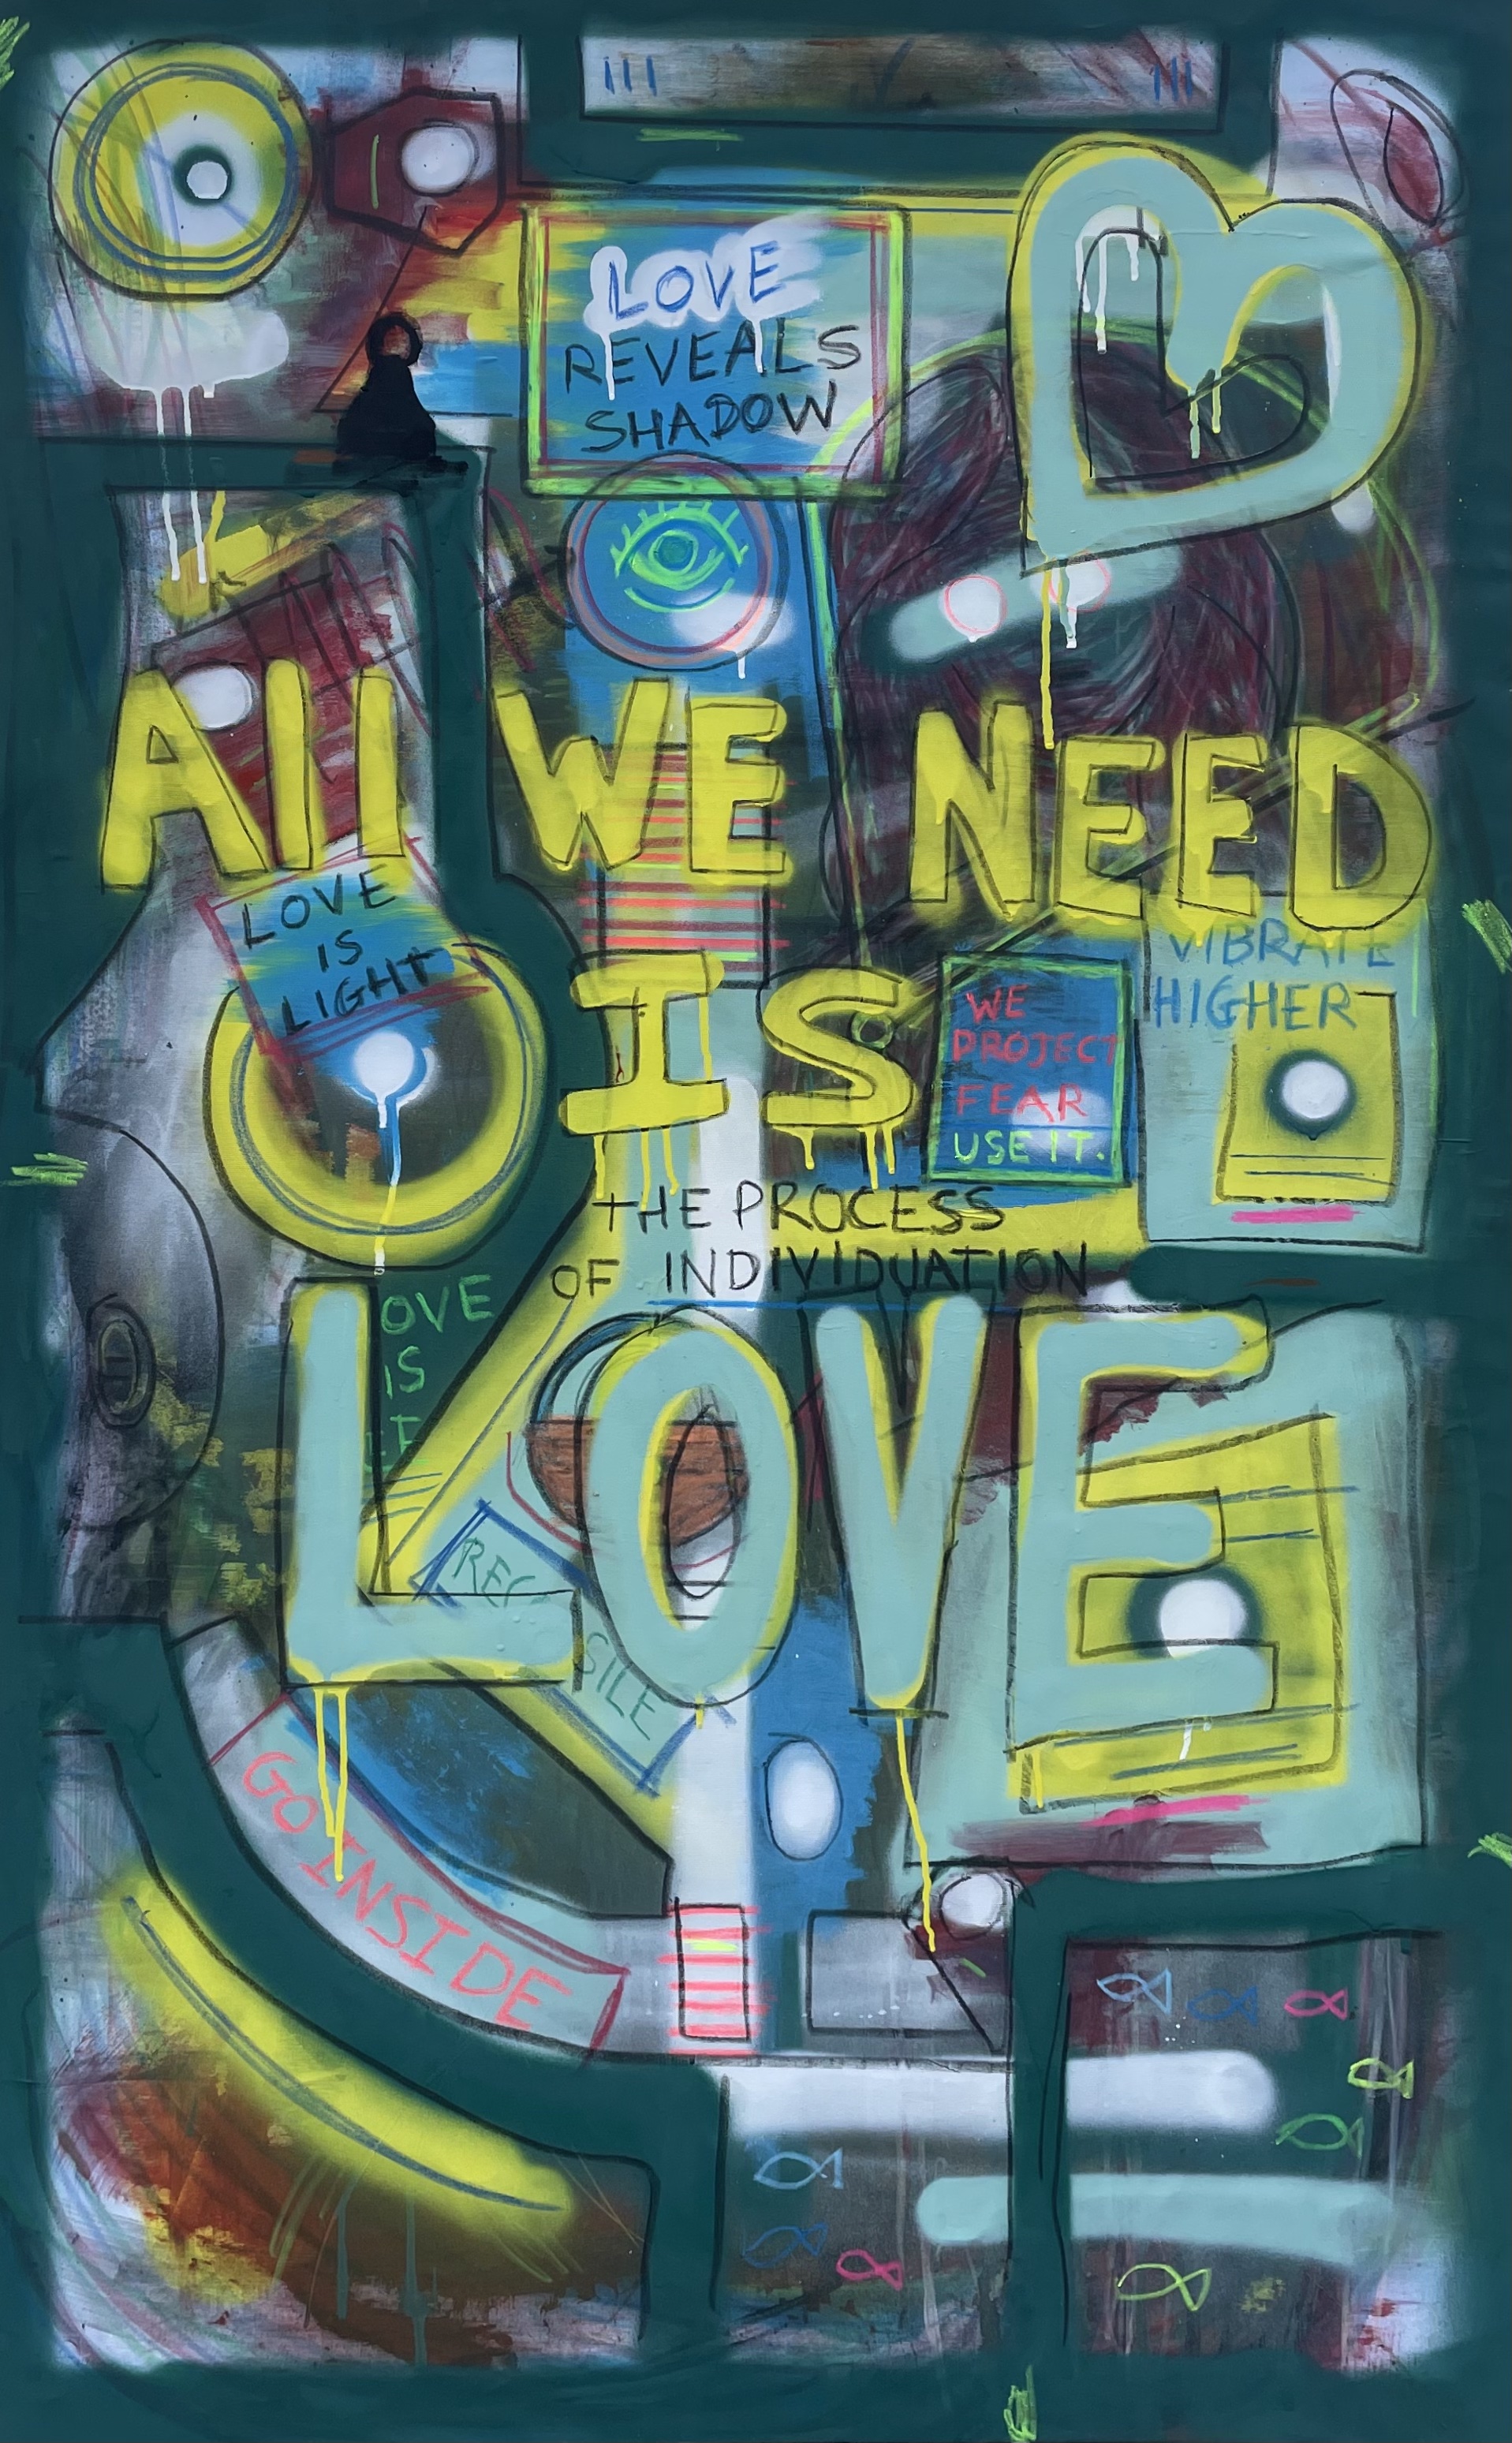 LOVE
REVEALS
SHADOW
All WE NEED
LOVE
IS
LIGHT
IS
WE
PROJECT
FEAR
USE IT.
VIBRATE
HIGHER
THE PROCESS
OF INDIVIDUATION
LOVE
OVE
IS
GO INSIDE